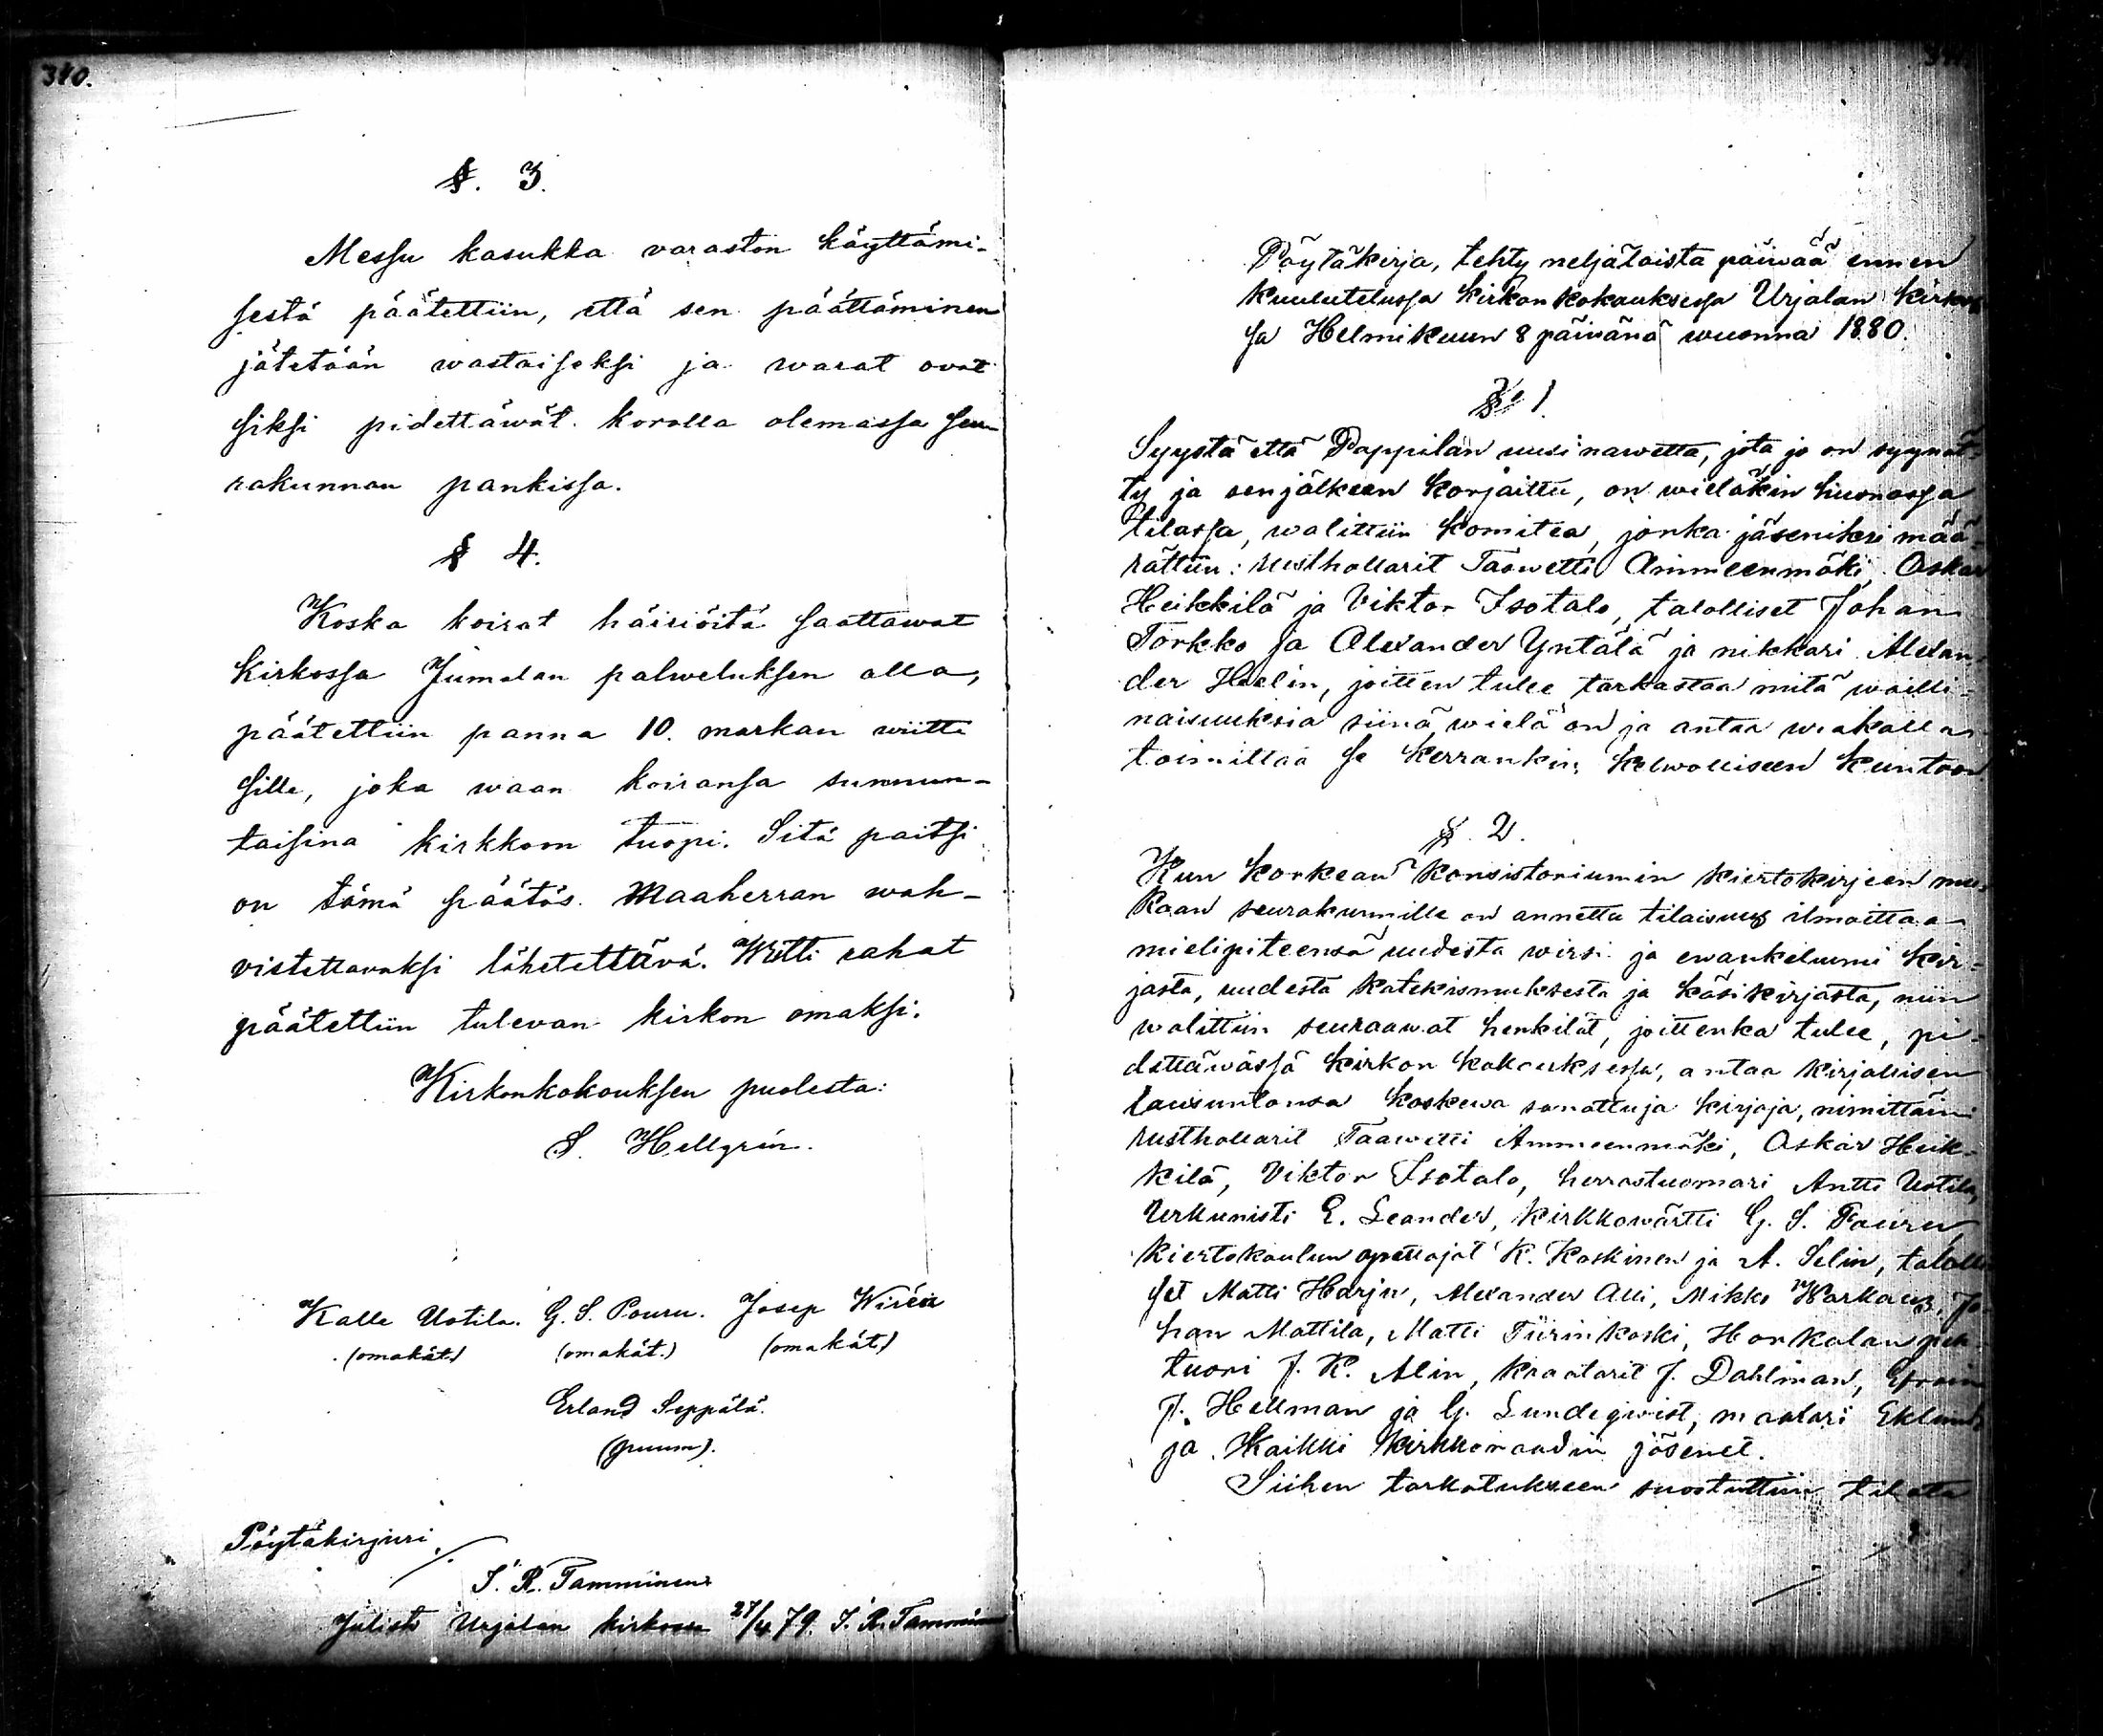 310.
§. 3.
Messu kasukka varaston käyttämi-
sestä päätettiin, että sen päättäminen
jätetään wastaiseksi ja warat ovat
siksi pidettäwät korolla olemassa seu-
rakunnan pankissa.
§ 4.
Koska koirat häiriöitä saattawat
kirkossa Jumalan palweluksen alla,
päätettiin panna 10. markan wiitte
sille, joka waan koiransa sunnun-
taisina kirkkoon tuopi. Sitä paitsi
on tämä päätös Maaherran wah-
vistettavaksi lähetettävä. Witti rahat
päätettiin tulevan kirkon omaksi.
Kirkonkokouksen puolesta:
S. Hellgrén.
Kalle Uotila. G. S. Pouru. Josep Wirén
(omakät.) (omakät.) (omakät)
Erland Seppälä.
(puum).
Pöytäkirjuri,
I. R. Tamminen
Julist. Urjalan kirkossa 27/4 79. I. R. Tamminen
Pöytäkirja, tehty neljätoista päiwää ennen
kuulutelussa kirkonkokouksessa Urjalan kirkos
sa Helmikuun 8 päivänä wuonna 1880.
§ 1.
Syystä että Pappilan uusi nawetta, jota jo on syynät-
ty ja senjälkeen korjaittu, on wieläkin huonossa
tilassa, walittiin komitea, jonka jäseniksi mää-
rättiin: rusthollarit Taawetti Ammeenmäki, Oskar
Heikkilä ja Viktor Isotalo, talolliset Johan
Torkko ja Alexander Yntälä ja nikkari Alexan-
der Helin, joitten tulee tarkastaa mitä wailli-
naisuuksia siinä wielä on ja antaa
toimittaa se kerrankin kelwolliseen kuntoon
§. 2.
Kun korkean Konsistoriumin kiertokirjeen mu-
kaan seurakunnille on annettu tilaisuus ilmoittaa
mielipiteensä uudesta wirsi ja ewankeliumi kir-
jasta, uudesta katekismuksesta ja käsikirjasta, niin
walittiin seuraawat henkilöt, joittenka tulee, pi-
dettäwässä kirkon kokouksessa, antaa kirjallisen
lausuntonsa koskewa sanottuja kirjoja, nimittäin
rusthollarit Taawetti Ammeenmäki, Oskar Heik-
kilä, Viktor Isotalo, herrastuomari Antti Uotila,
Urkunisti E. Leander, kirkkowärtti G. S. Pouru,
kiertokoulun opettajat K. Koskinen ja A. Selin, talolli
set Matti Harju, Alexander Alli, Mikko Warkaus, Jo-
han Mattila, Matti Tiirinkoski, Honkolan
tuori J. K. Alin, kraatarit J. Dahlman, Efraim
J. Hellman ja G. Lundeqwist, maalari Eklund
ja Kaikki kirkkoraadin jäsenet.
Siihen tarkotukseen suostuttiin tilata